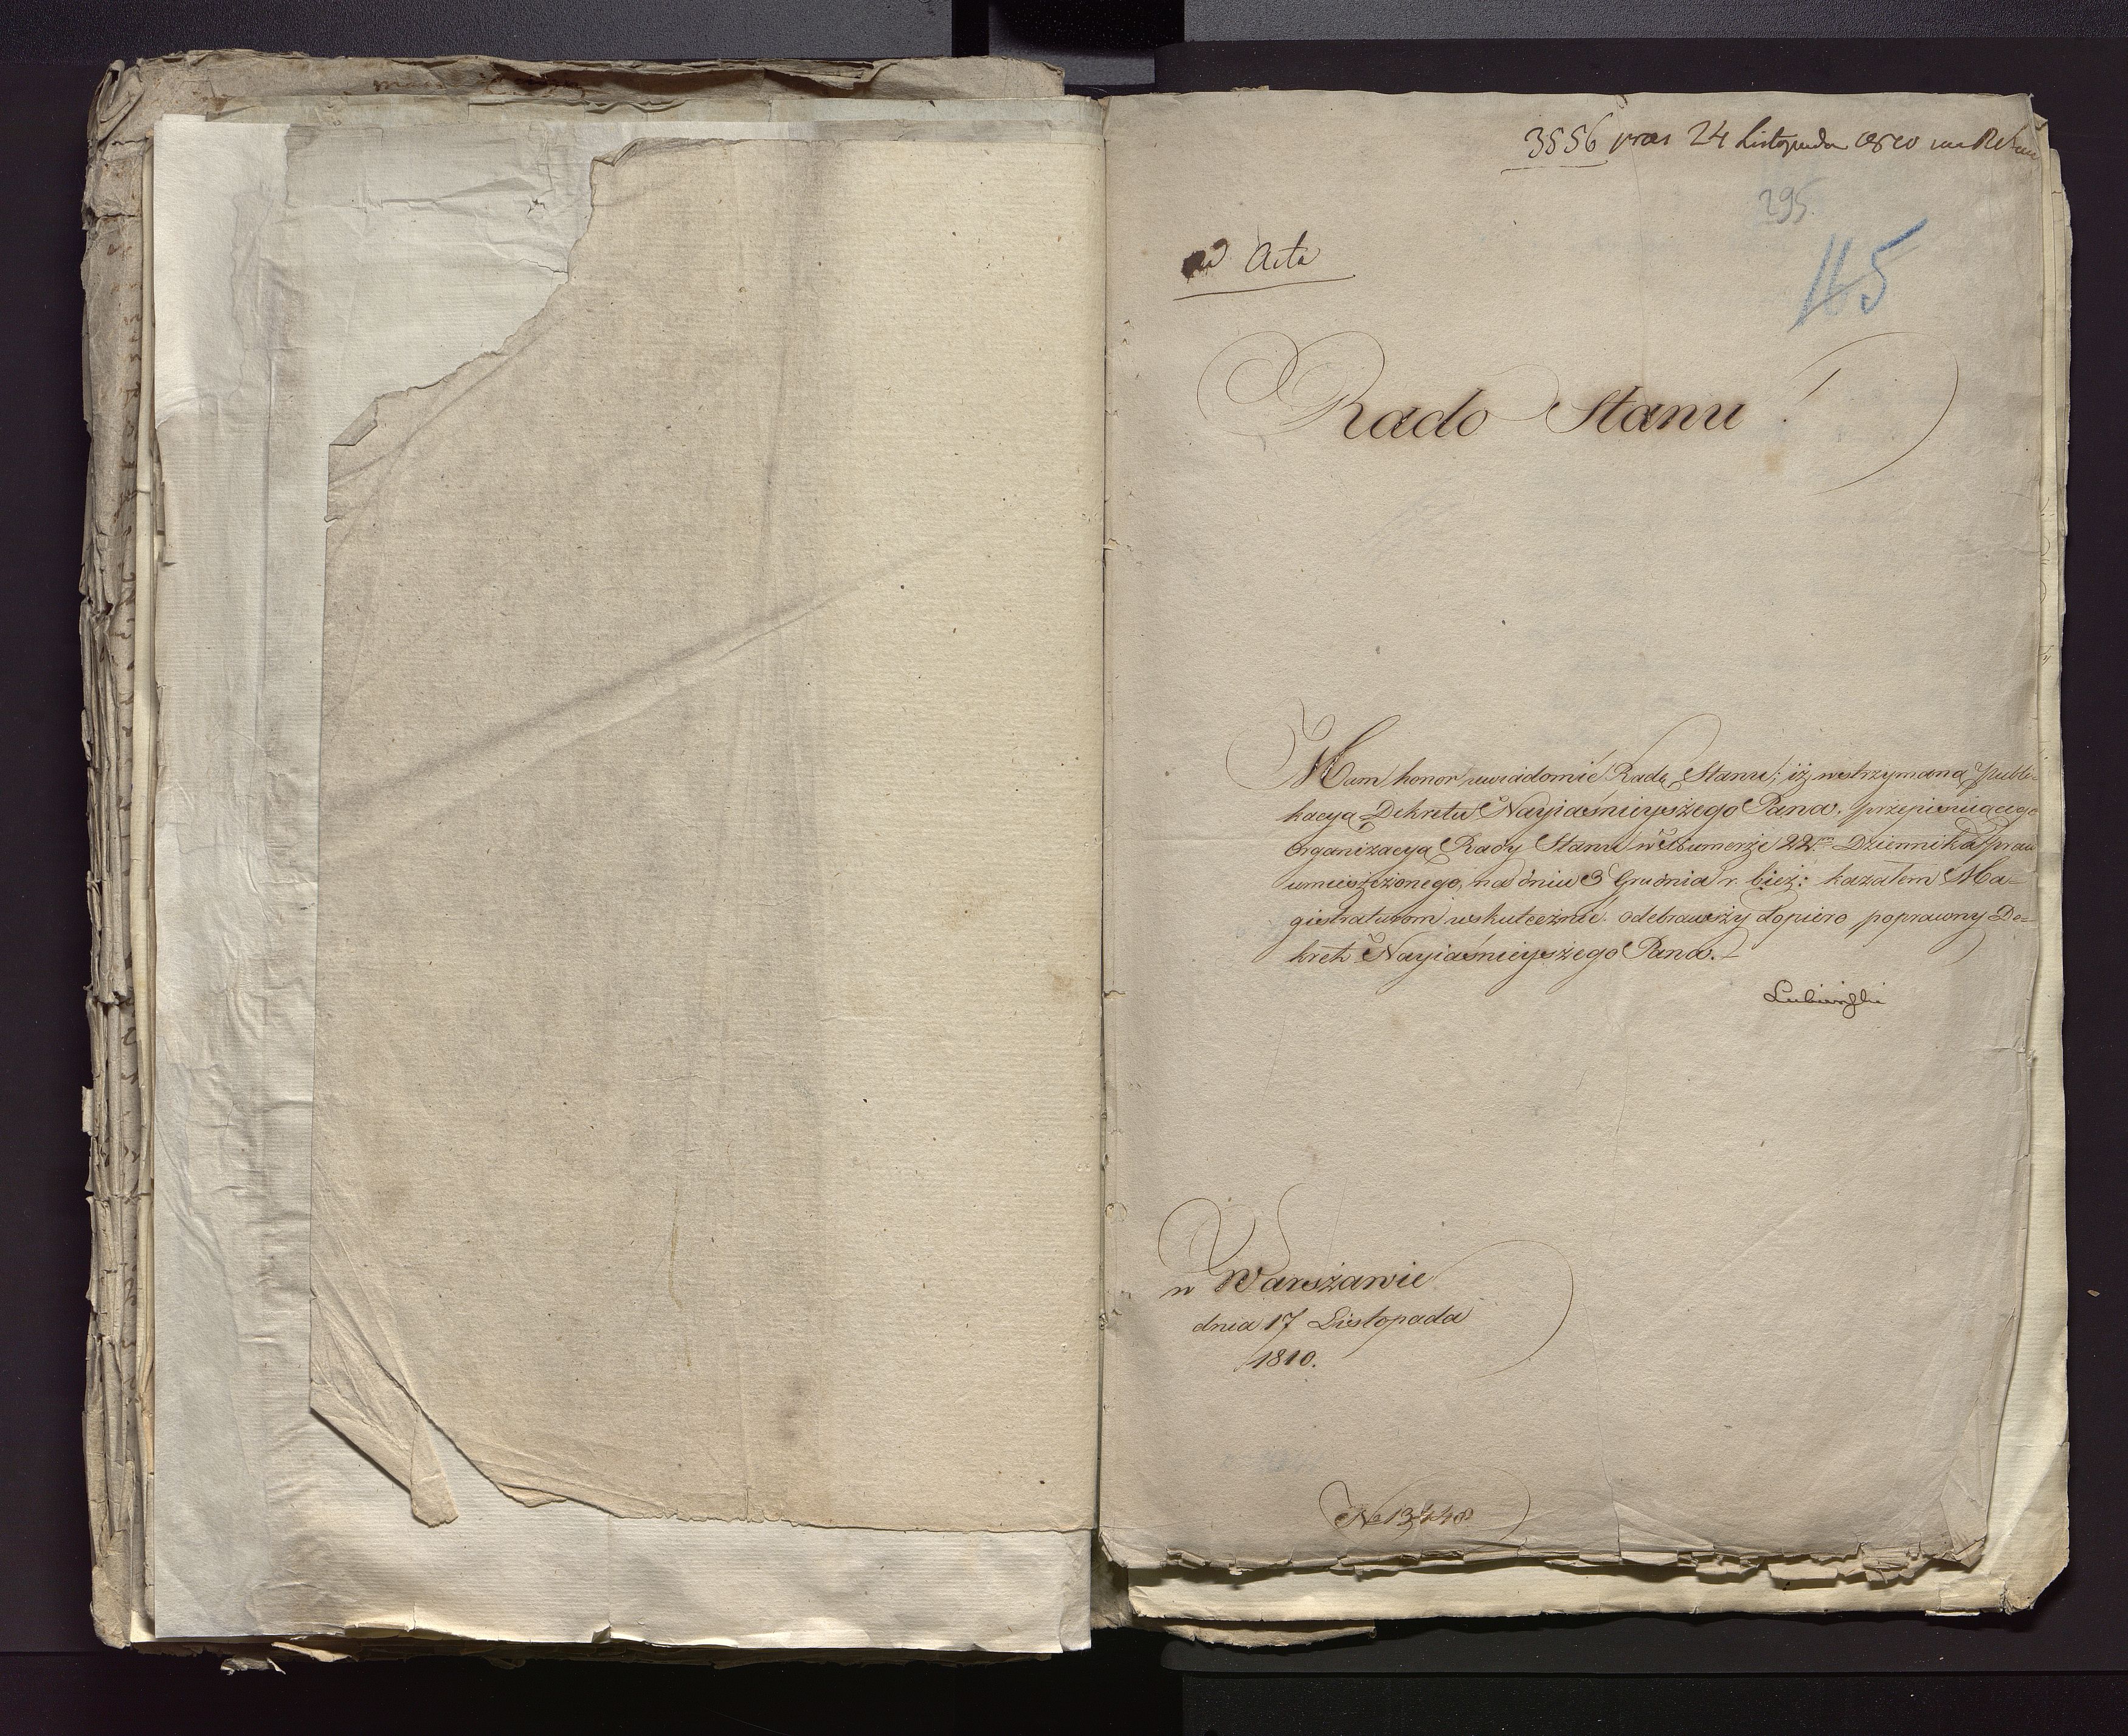 3556 praes 24 Listopada 1810 na Rekur
295
ad Acta
115
Rado Stanu!
Mam honor uwiadomić Radę Stanu; iż wstrzymaną publi-
kacyą Dekretu Nayiaśnieyszego Pana, przepisuiącego
organizacyą Rady Stanu w Numerze 22m Dziennika praw
umieszczonego, na dniu 3 Grudnia r. bież: kazałem Ma-
gistraturom uskutecznić odebrawszy dopiero poprawny De-
kret Nayiaśnieyszego Pana.
Lubieński
w Warszawie
dnia 17 Listopada
1810.
No 13448